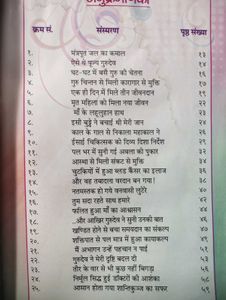 अनुक्रमणिका
क्रम सं. संस्मरण पृष्ठ संख्या
१. मंत्रपूत जल का कमाल १३
२. ऐसे थे पूज्य गुरुदेव १४
३. घट-घट में बसे गुरु की चेतना १६
४. गुरु चिन्तन से मिली कारागार से मुक्ति १९
५. एक ही दिन में मिले तीन जीवनदान
६. मृत महिला को मिला नया जीवन २२
७. माँ के लहलुहान हाथ २३
८. इसी बुड्ढे ने बचाई थी मेरी जान
९. काल के गाल से निकाला महाकाल ने
१०. ईसाई चिकित्सक को दिव्य दिशा निर्देश २९
११. पल भर में सुनी गई अबला की पुकार
१२. आस्था से मिली संकट से मुक्ति ३४
१३. चुटकियों में हुआ ब्लड कैंसर का इलाज
१४. और वह तबादला वरदान बन गया!
१५. नतमस्तक हो गये वनवासी लुटेरे
१६. तुम सदा रहते साथ हमारे
१७. फलित हुआ माँ का आश्वासन
१८. ..और आखिर गुरुदेव ने सुनी उनकी बात
१९. खण्डित होने से बचा समयदान का संकल्प
२०. शक्तिपात से पल मात्र में हुआ कायाकल्प
२१. मैं अभागन उन्हें पहचान न पाई
२२. गुरुदेव ने मेरी दृष्टि बदल दी
२३. तीर के वार से भी कुछ नहीं बिगड़ा
२४. निर्मूल सिद्ध हुई डॉक्टरों की आशंका
२५. आसान होता गया शान्तिकुञ्ज का सफर